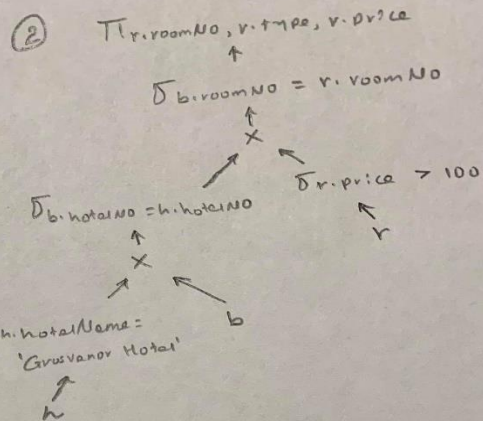 ②
Π r.roomNo, r.type, r.price
σ b.roomNo = r.roomNo
×
σ r.price > 100
σ b.hotelNo = h.hotelNo
r
×
h.hotelName =
'Grosvanor Hotel'
b
h